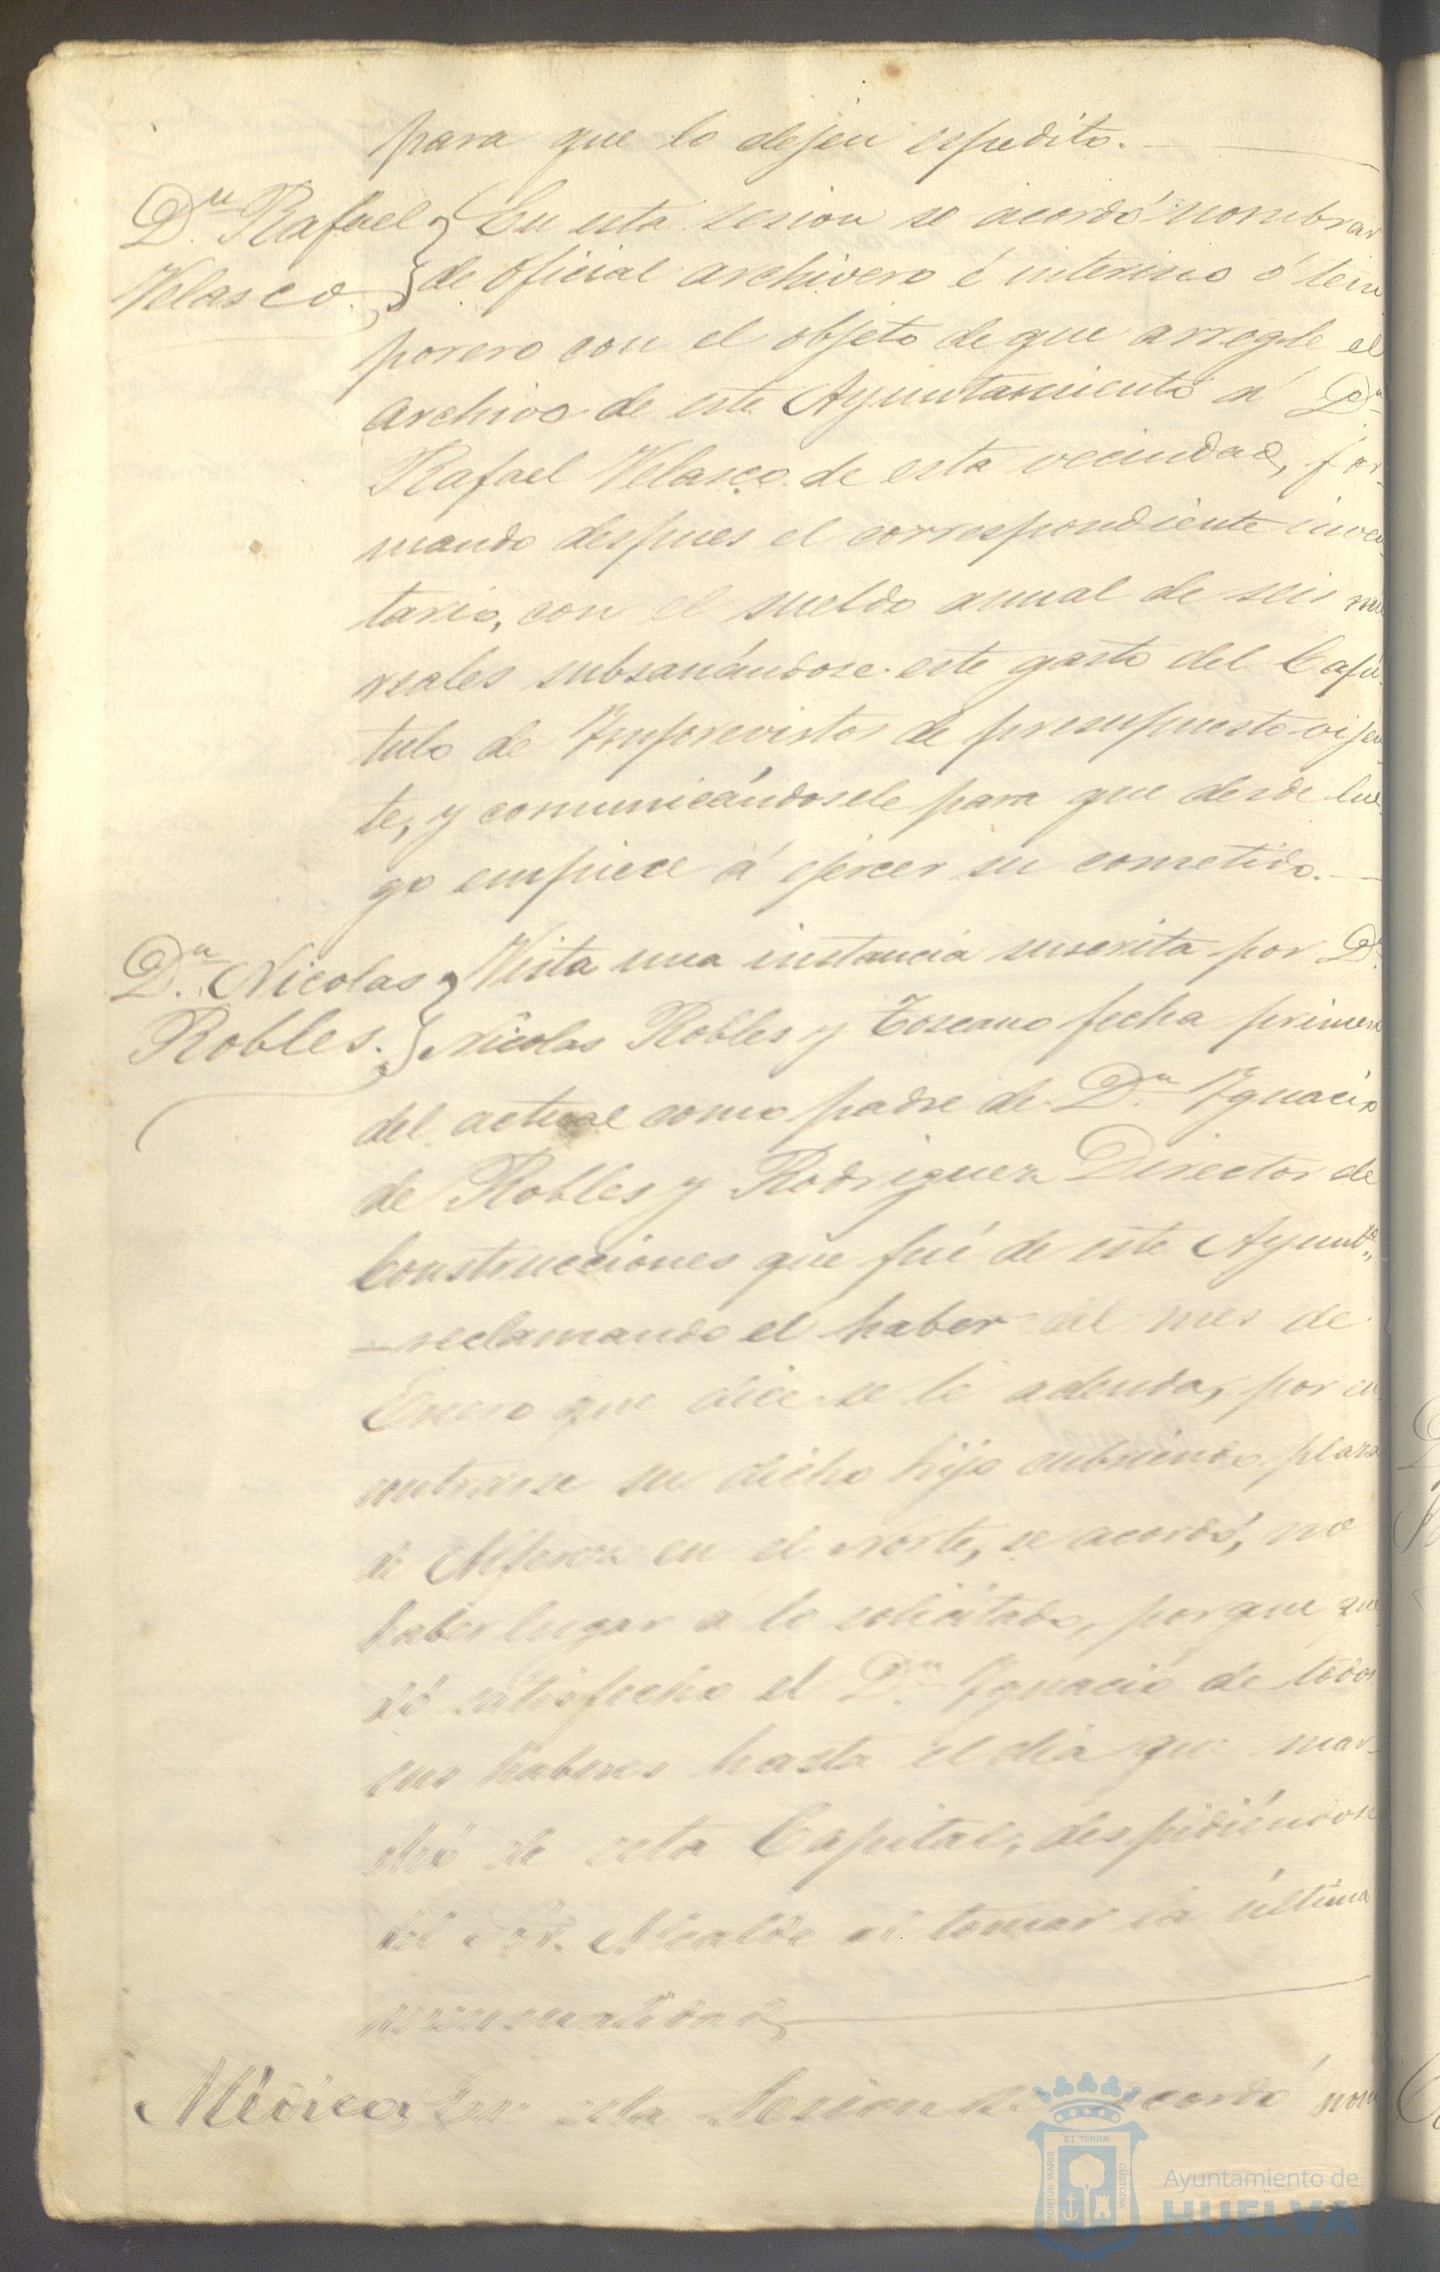 para que lo dejen espedito.
Dn. Rafael
Velasco.
En esta sesion se acordó nombrar
de oficial archivero é interino ó tem
porero con el objeto de que arregle el
archivo de este Ayuntamiento á Dn
Rafael Velasco de esta vecindad, for-
mando despues el correspondiente inven
tario, con el sueldo anual de seis mil
reales subsanándose este gasto del Capi-
tulo de Imprevistos de presupuesto vijen
te, y comunicándosele para que desde lue
go empiece á ejercer su cometido.
Dn. Nicolas
Robles.
Vista una instancia suscrita por Dn
Nicolas Robles y Toscano fecha primero
del actual como padre de Dn. Ignacio
de Robles y Rodriguez Director de
Construcciones que fué de este Ayuntº,,
reclamando el haber al mes de
Enero que dice se le adeuda, por en
contrarse su dicho hijo cubriendo plaza
de Alferez en el Norte, se acordó, no
haber lugar á lo solicitado, porque que
dó satisfecho el Dn. Ignacio de todos
sus haberes hasta el dia que mar-
chó de esta Capital, despidiéndose
del Sor. Alcalde al tomar la última
mensualidad,
Médico
En esta Sesion se acordó nom
PORTUS MARIS
ET TERRÆ
CUSTODIA
Ayuntamiento de
HUELVA